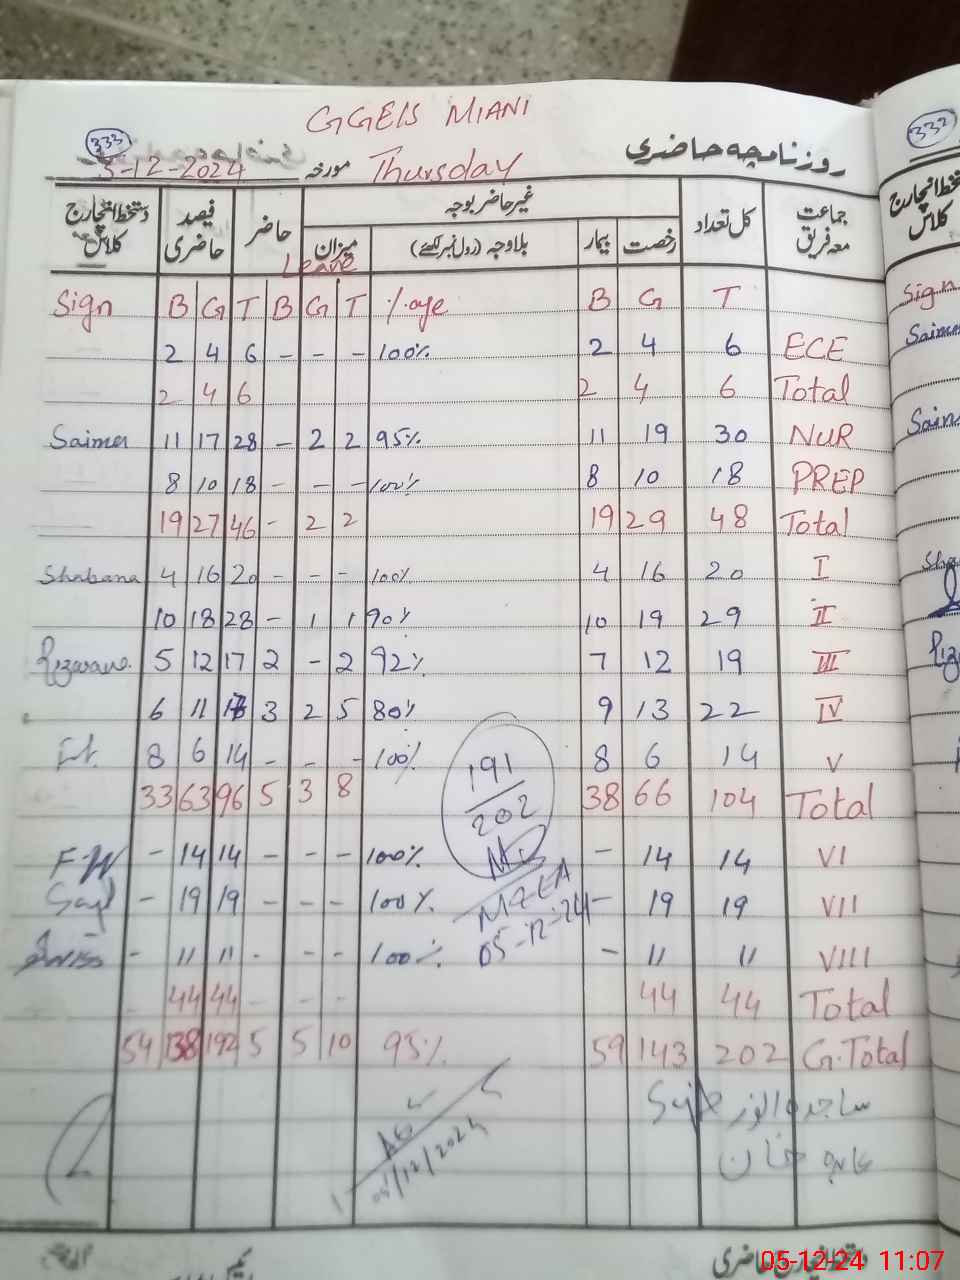 GGEIS MIANI
333
332
روزنامچہ حاضری
5-12-2024 مورخہ Thursday
جماعت معہ فریق کل تعداد غیر حاضر بوجہ حاضر فیصد حاضری دستخط انچارج کلاس
رخصت بیمار بلاوجہ (رول نمبر لکھئے) میزان
دستخط انچارج کلاس
Leave
Sign B G T B G T %age B G T
2 4 6 - - - 100% 2 4 6 ECE
2 4 6 2 4 6 Total
Saimer 11 17 28 - 2 2 95% 11 19 30 NUR
8 10 18 - - - 100% 8 10 18 PREP
19 27 46 - 2 2 19 29 48 Total
Shabana 4 16 20 - - - 100% 4 16 20 I
10 18 28 - 1 1 90% 10 19 29 II
5 12 17 2 - 2 92% 7 12 19 III
6 11 3 2 5 80% 9 13 22 IV
8 6 14 - - - 100% 8 6 14 V
33 63 96 5 3 8 38 66 104 Total
191
202
- 14 14 - - - 100% - 14 14 VI
- 19 19 - - - 100% - 19 19 VII
MEEA
05-12-24
- 11 11 - - - 100% - 11 11 VIII
- 44 44 - - - 44 44 Total
54 138 192 5 5 10 95% 59 143 202 G.Total
05/12/2024
Sign
05-12-24 11:07